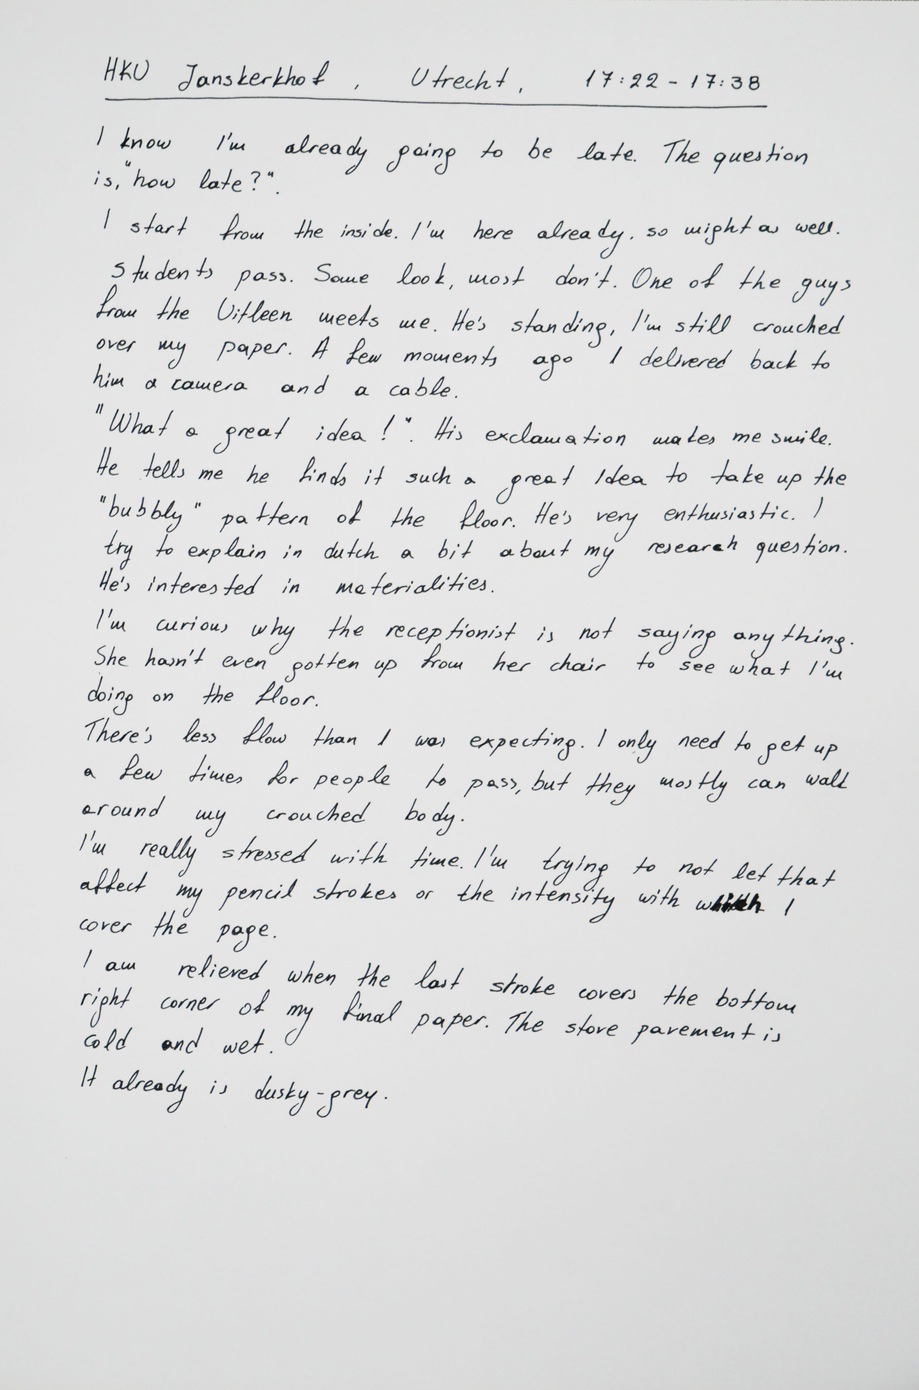 HKU Janskerkhof, Utrecht, 17:22 - 17:38
I know I'm already going to be late. The question
is, "how late?".
I start from the inside. I'm here already, so might as well.
Students pass. Some look, most don't. One of the guys
from the Uitleen meets me. He's standing, I'm still crouched
over my paper. A few moments ago I delivered back to
him a camera and a cable.
"What a great idea!". His exclamation makes me smile.
He tells me he finds it such a great Idea to take up the
"bubbly" pattern of the floor. He's very enthusiastic. I
try to explain in dutch a bit about my research question.
He's interested in materialities.
I'm curious why the receptionist is not saying anything.
She hasn't even gotten up from her chair to see what I'm
doing on the floor.
There's less flow than I was expecting. I only need to get up
a few times for people to pass, but they mostly can walk
around my crouched body.
I'm really stressed with time. I'm trying to not let that
affect my pencil strokes or the intensity with I
cover the page.
I am relieved when the last stroke covers the bottom
right corner of my final paper. The stove pavement is
cold and wet.
It already is dusky-grey.